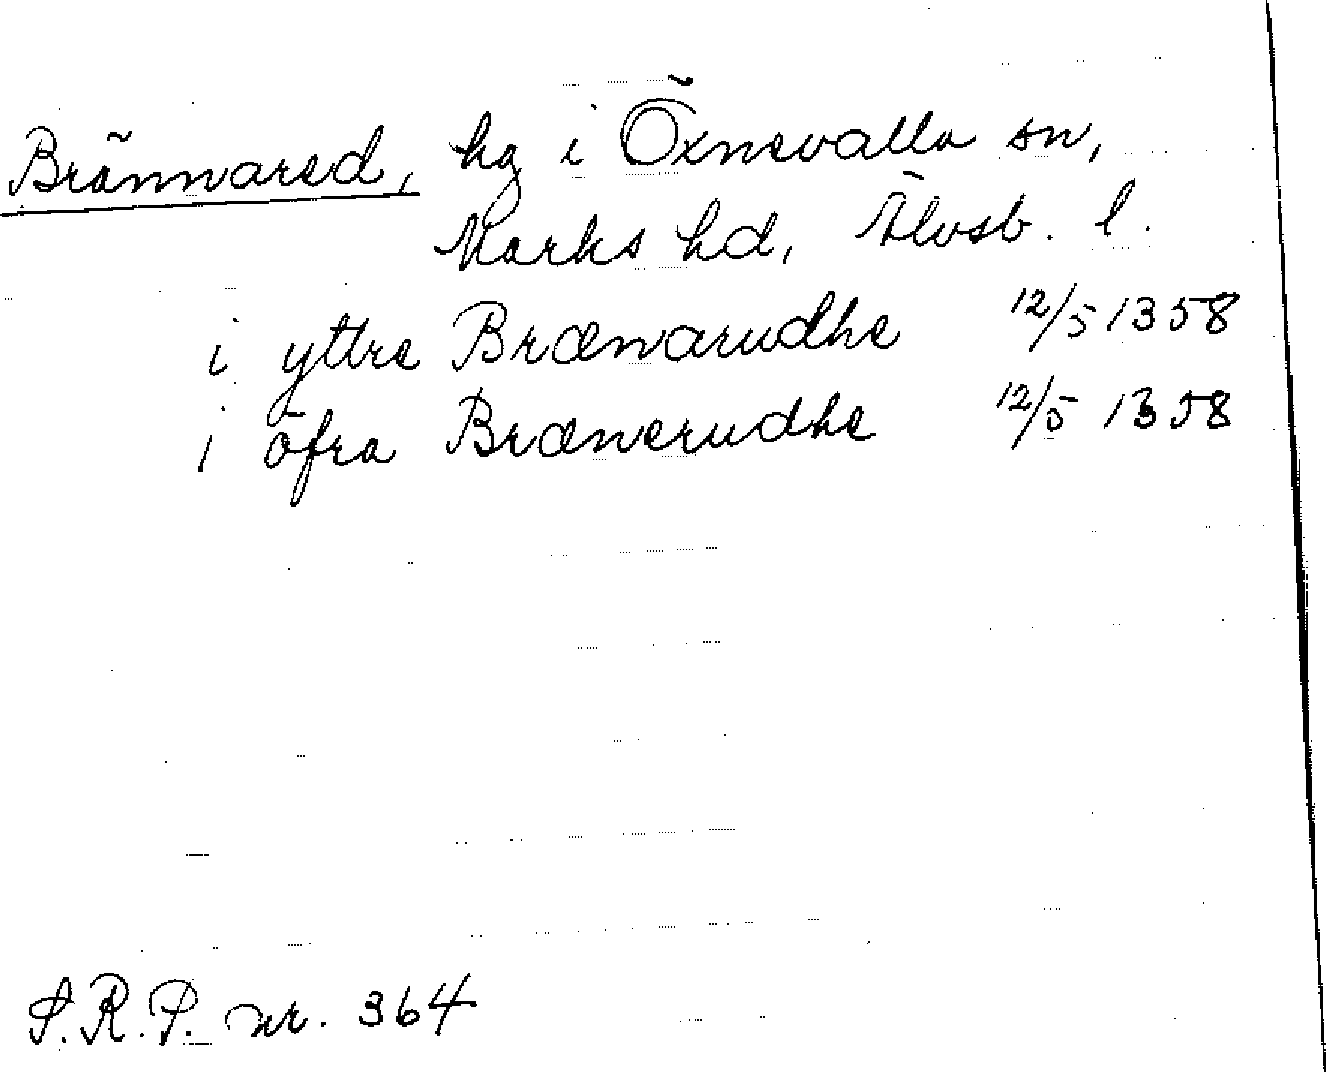 Brännared, hg i Öxnevalla sn,
Marks hd, Älvsb. l.
i yttre Brænnarudhe 12/5 1358
i öfra Brænnerudhe 12/5 1358
S.R.P. nr. 364